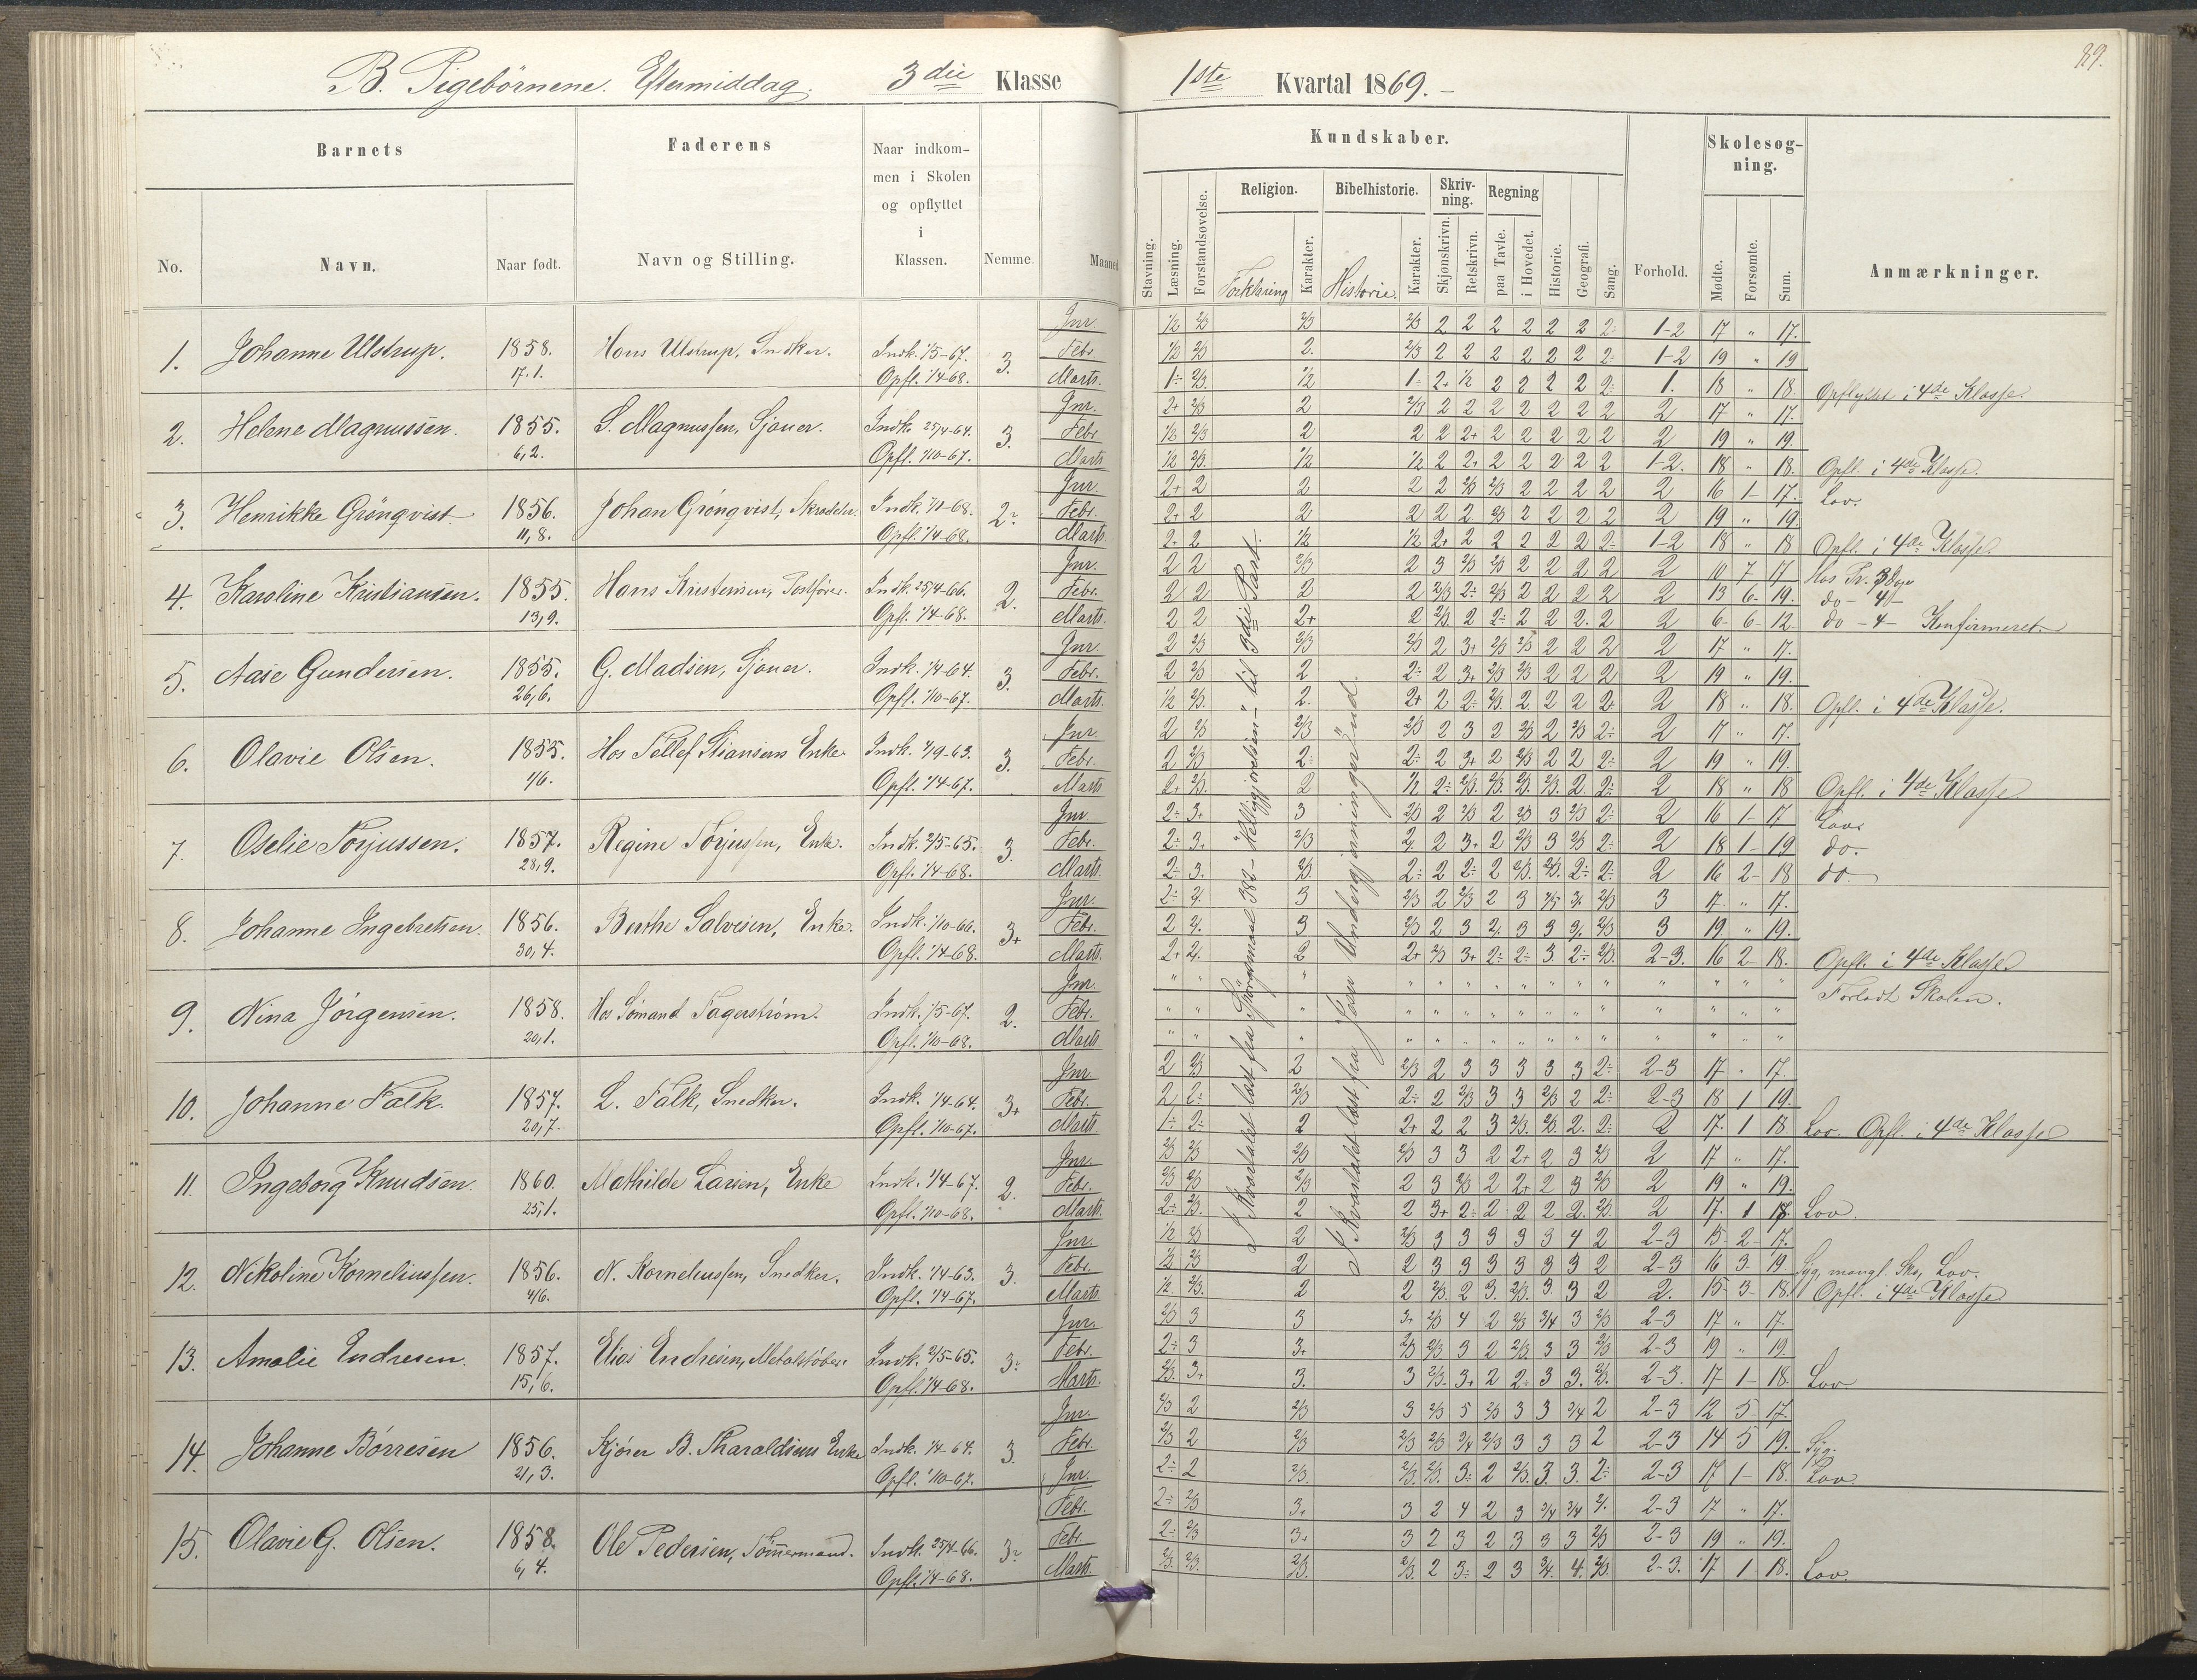 B. Pigebörnene. Eftermiddag. 3die Klasse
1ste Kvartal 1869.
89.
Barnets
Faderens
Naar indkom-
men i Skolen
og opflyttet
i
Klassen.
No.
Navn.
Naar født.
Navn og Stilling.
Nemme.
Maaned
Kundskaber.
Skolesøg-
ning.
Stavning.
Læsning.
Forstandsøvelse.
Religion.
Forklaring
Karakter.
Bibelhistorie.
Historie.
Karakter.
Skriv-
ning.
Skjønskrivn.
Retskrivn.
Regning
paa Tavle.
i Hovedet.
Historie.
Geografi.
Sang.
Forhold.
Mødte.
Forsømte.
Sum.
Anmærkninger.
1. Johanne Ulstrup. 1858. 17.1. Hans Ulstrup, Snedker. Indk. 1/5-67. Opfl. 1/4-68. 3.
Jnr. 1/2 2/3 2/3 2/3 2 2 2 2 2 2 2÷ 1-2 17 " 17.
Febr. 1/2 2/3 2. 2/3 2 2 2 2 2 2 2÷ 1-2 19 " 19
Marts. 1÷ 2/3. 1/2 1÷ 2+ 1/2 2 2 2 2 2÷ 1. 18 " 18. Opflyttet i 4de Klasse.
2. Helene Magnussen. 1855. 6,2. S. Magnussen, Sjouer. Indk. 25/4-64. Opfl. 1/10-67. 3.
Jnr. 2+ 2/3 2 2/3 2 2 2 2 2 2 2 2 17 " 17.
Febr. 1/2 2/3 2 2 2 2+ 2 2 2 2 2 2 19 " 19
Marts 1/2 2/3. 1/2 1/2 2 2+ 2 2 2 2 2 1-2. 18 " 18. Opfl. i 4de Klasse.
3. Henrikke Grönqvist. 1856. 11,8. Johan Grönqvist, Skrædder. Opfl. 1/4-68. 2÷
Jnr. 2+ 2 2 2 2 2/3 2/3 2 2 2 2 2 16 1- 17. Lov.
Febr. 2+ 2 2 2 2 2. 2/3 2 2 2 2 2 19 " 19.
Marts. 2+ 2 1/2 1/2 2+ 2 2 2 2 2 2÷ 1-2 18 " 18 Opfl. i 4de Klasse.
4. Karoline Kristiansen. 1855. 13,9. Hans Kristensen, Postfører. Indk. 25/4-66. Opfl. 1/4-68. 2.
Jnr. 2 2 2/3 2 3 2/3 2/3 2 2 2 2 2 10 7 17 Hos Pr. 3 Dge
Febr. 2 2 2 2 2/3 2÷ 2/3 2 2 2 2 2 13 6- 19. do - 4-
Marts. 2 2 2+ 2 2/3. 2 2÷ 2 2 2. 2 2 6- 6- 12 do - 4- Konfirmeret.
5. Aase Gundersen. 1855. 26,6. G. Madsen, Sjouer. Indk. 1/4-64. Opfl. 1/10-67. 3.
Jnr. 2 2/3 2/3 2/3 2 3+ 2/3 2/3 2 2 2 2 17 " 17.
Febr. 2 2/3 2 2÷ 2 3+ 2/3 2/3 2 2 2 2 19 " 19.
Marts. 1/2 2/3. 2. 2+ 2 2÷ 2/3. 2. 2 2 2+ 2 18 " 18. Opfl. i 4de Klasse.
6. Olavie Olsen. 1855. 1/6. Hos Tellef Stiansens Enke. Opfl. 1/4-67. 3.
Jnr. 2 2/3 2/3 2/3 2 3 2 2/3 2 2/3 2÷ 2 17 " 17.
Febr. 2 2/3 2÷ 2÷ 2 3+ 2 2/3 2 2 2÷ 2 19 " 19.
Marts 2+ 2/3. 2 1/2 2÷ 2/3. 2/3. 2/3. 2/3. 2. 2÷ 2 18 " 18 Opfl. i 4de Klasse
7. Oselie Torjussen. 1857. 28,9. Regine Torjussen, Enke. Indk. 2/5-65. Opfl. 1/4-68. 3.
Jnr. 2÷ 3+ 3 2/3 2 2/3 2 2/3 3 2/3 2÷ 2 16 1- 17 Lov.
Febr. 2÷ 3+ 2/3 2 3+ 2 2/3 3 2/3 2÷ 2 18 1- 19 do.
Marts. 2÷ 3. 2/3. 2÷ 2 2÷ 2 2/3. 2/3. 2÷ 2÷ 2 16 2- 18 do.
8. Johanne Ingebretsen. 1856. 30,4. Berthe Salvesen, Enke. Indk. 1/10-66. Opfl. 1/4-68. 3+
Jnr. 3 17. " 17.
Febr. 3 19 " 19.
Marts. 2-3. 16 2- 18. Opfl. i 4de Klasse
9. Nina Jörgensen. 1858. 20,1. Hos Sömand Fagerström. Indk. 1/5-67. Opfl. 1/10-68. 2.
Jnr. " " " " " " " " " " " " " " " Forladt Skolen.
Febr. " " " " " " " " " " " " " " "
Marts " " " " " " " " " " " " " " "
10. Johanne Falk. 1857. 20,7. L. Falk, Snedker. Indk. 1/4-64. Opfl. 1/10-67. 3+
Jnr. 2 2/3 2 2/3 2 3 3 3 3 3 2÷ 2-3 17 " 17.
Febr. 2 2÷ 2/3 2÷ 2 2/3 3 3 2/3 2 2÷ 2-3 18 1 19.
Marts. 1÷ 2÷ 2 2+ 2 2 3 2/3. 2/3. 2. 2÷ 2 17. 1 18. Lov. Opfl. i 4de Klasse
11. Ingeborg Knudsen. 1860. 25,1. Mathilde Larsen, Enke Indk. 1/4-67. Opfl. 1/10-68. 2.
Jnr. 2/3 2/3 2/3 2/3 3 3 2 2+ 2 3 2/3 2 17 " 17.
Febr. 2/3 2/3 2/3 2 3 2/3 2 2+ 2 3 2/3 2 19 " 19.
Marts. 2÷ 2/3. 2 2 3+ 2÷ 2 2 2 2. 2/3 2 17. 1 18. Lov.
12. Nikoline Korneliussen. 1856. 4/6. N. Korneliussen, Snedker. Indk. 1/4-63. Opfl. 1/4-67. 3.
Jnr. 1/2 2/3 2 2/3 3 3 3 3 3 4 2 2-3 15 2- 17.
Febr. 1/2 2/3 2 2 3 3 3 3 3 3 2 2-3 16 3 19 Syg, mangl. Sko, Lov.
Marts 1/2 2/3. 2 2 2/3. 2 3. 2/3. 3. 3 2 2. 15 3- 18. Opfl. i 4de Klasse
13. Amalie Endresen. 1857. 15,6. Elias Endresen, Metalstöber. Indk. 2/5-65. Opfl. 1/4-68. 3÷
Jnr. 2/3 3 3 3+ 2/3 4 2 2/3 3/4 3 2/3 2-3 17 " 17.
Febr. 2÷ 3 3+ 2/3 2/3 3 2 2/3. 3 3 2/3 2-3 19 " 19
Marts. 2/3. 3+ 3. 3 2/3. 3+ 2 2÷ 3 3. 2/3. 2-3. 17 1- 18 Lov
14. Johanne Börresen 1856. 21,3. Kjører B. Tharaldsens Enke Indk. 1/4-64. Opfl. 1/10-67. 3.
Jnr. 2/3 2 2/3 3 2/3 5 2/3 3 3 3/4 2 2-3 12 5- 17.
Febr. 2/3 2 2/3 2/3 2/3 3/4 2/3 3 3 3 2 2-3 14 5 19. Syg.
Jnr. 2÷ 2 2/3. 2/3. 2/3. 3÷ 2 2/3. 3. 3. 2÷ 2-3 17 1- 18. Lov
15. Olavie G. Olsen. 1858. 6,4. Ole Pedersen, Tömmermand. Indk. 25/4-66. Opfl. 1/4-68. 3÷
Febr. 2÷ 2/3 3+ 3 2 4 2 3 3/4 3/4 2-3 17 " 17.
Febr. 2÷ 2/3 3+ 3 2 3 2 3 3 3 2/3 2-3 19 " 19.
Marts. 2/3. 2/3. 2/3. 2/3. 2 3÷ 2 3 3/4. 4. 2/3. 2-3. 17 1 18. Lov.
I Kvartalet læst fra Spörgsmaal 382 - "Helliggjörelsen" - til 3die Part.
I Kvartalet læst fra Jesu Undergjerninger